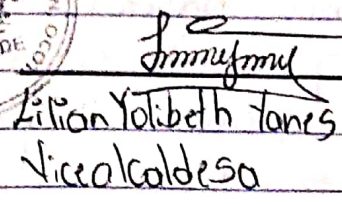 DE
Lilian Yolibeth Yanes
Vicealcaldesa